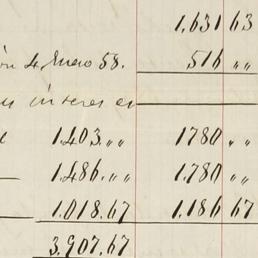 1,631 63
ón 4 Enero 58. 516 „„
us interes en
1.403.„„ 1780 „„
1.486.„„ 1.780 „„
1.018.67 1.186 67
3.907.67